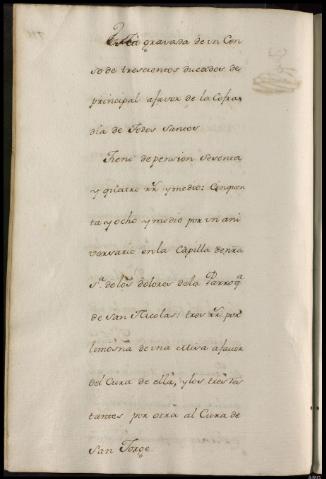 Esta gravada de un Cen
so de trescientos ducados de
principal a favor de la Cofra
dia de Todos Santos
Tiene de pension sesenta
y quatro rr. y medio: Cinquen
ta y ocho y medio por un ani
versario en la Capilla de nra
Sª. de los dolores de la Parroqª
de San Nicolas: tres rr. por
limosna de una Misa a favor
del Cura de ella, y los tres res
tantes por otra al Cura de
San Jorge